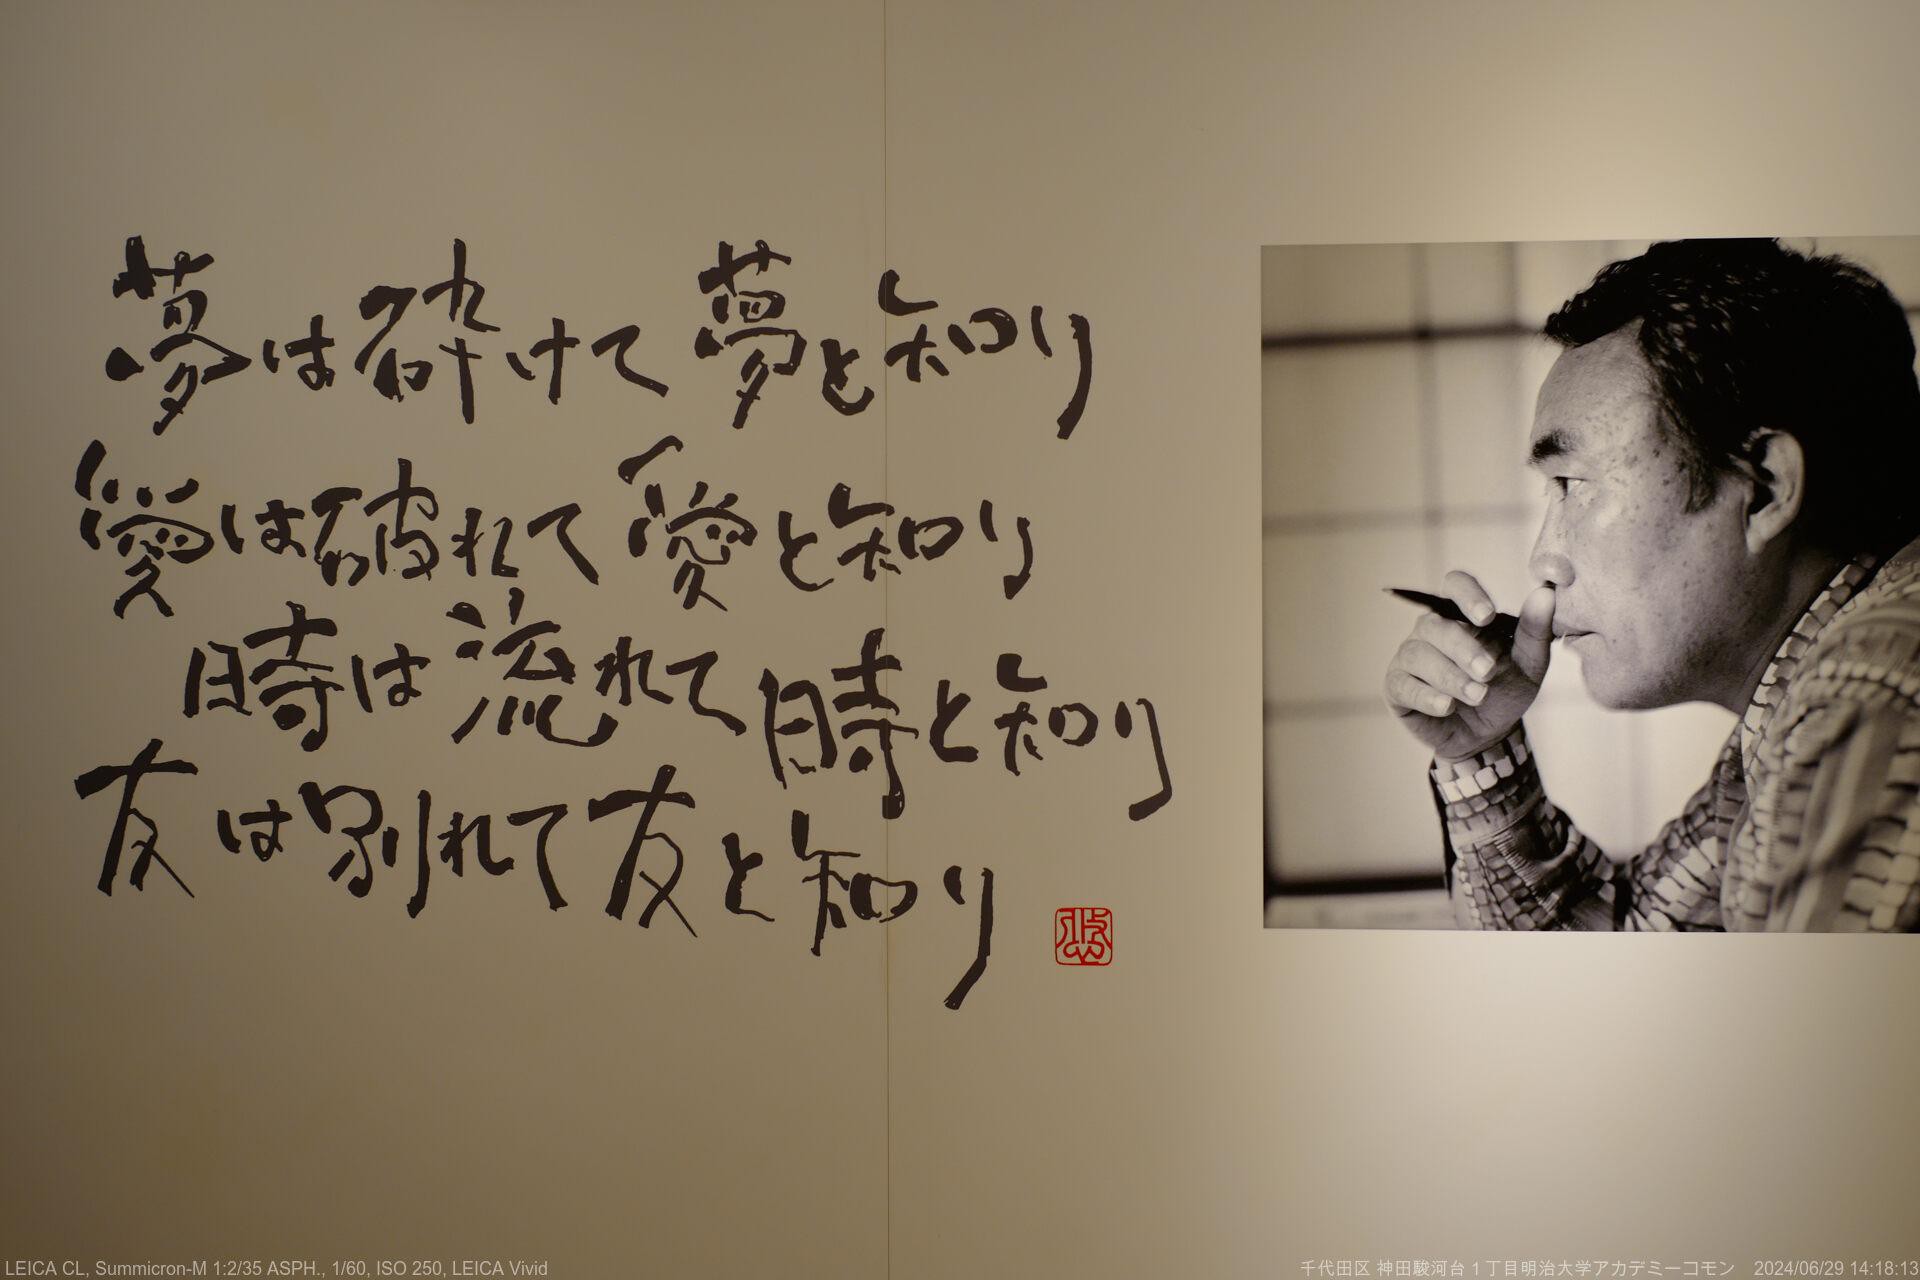 夢は砕けて夢と知り
愛は破れて愛と知り
時は流れて時と知り
友は別れて友と知り
LEICA CL, Summicron-M 1:2/35 ASPH., 1/60, ISO 250, LEICA Vivid
千代田区 神田駿河台１丁目明治大学アカデミーコモン 2024/06/29 14:18:13